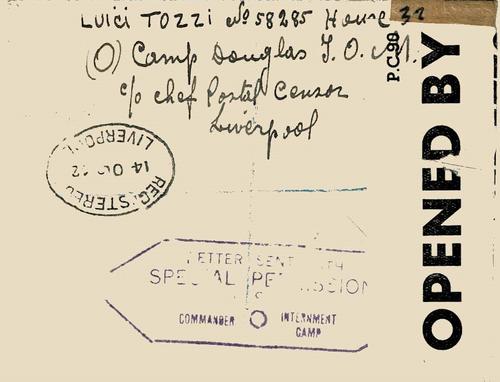 LUIGI TOZZI No 58285 House 32
(O) Camp Douglas I.O.M.
c/o chef Postal Censor
Liverpool
P.C. 90
OPENED BY
REGISTERED
14 OC 42
LIVERPOOL
LETTER SENT WITH
SPECIAL PERMISSION
COMMANDER INTERNMENT
CAMP